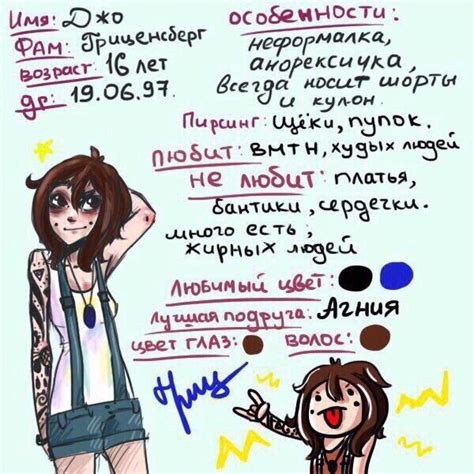 Имя: Джо
Фам: Гриценсберг
возраст: 16 лет
др: 19.06.97.
особенности:
неформалка,
анорексичка,
всегда носит шорты
и кулон.
Пирсинг: щёки, пупок.
любит: вмтн, худых людей
не любит: платья,
бантики, сердечки.
много есть;
жирных людей
любимый цвет:
лучшая подруга: Агния
цвет глаз:
волос: